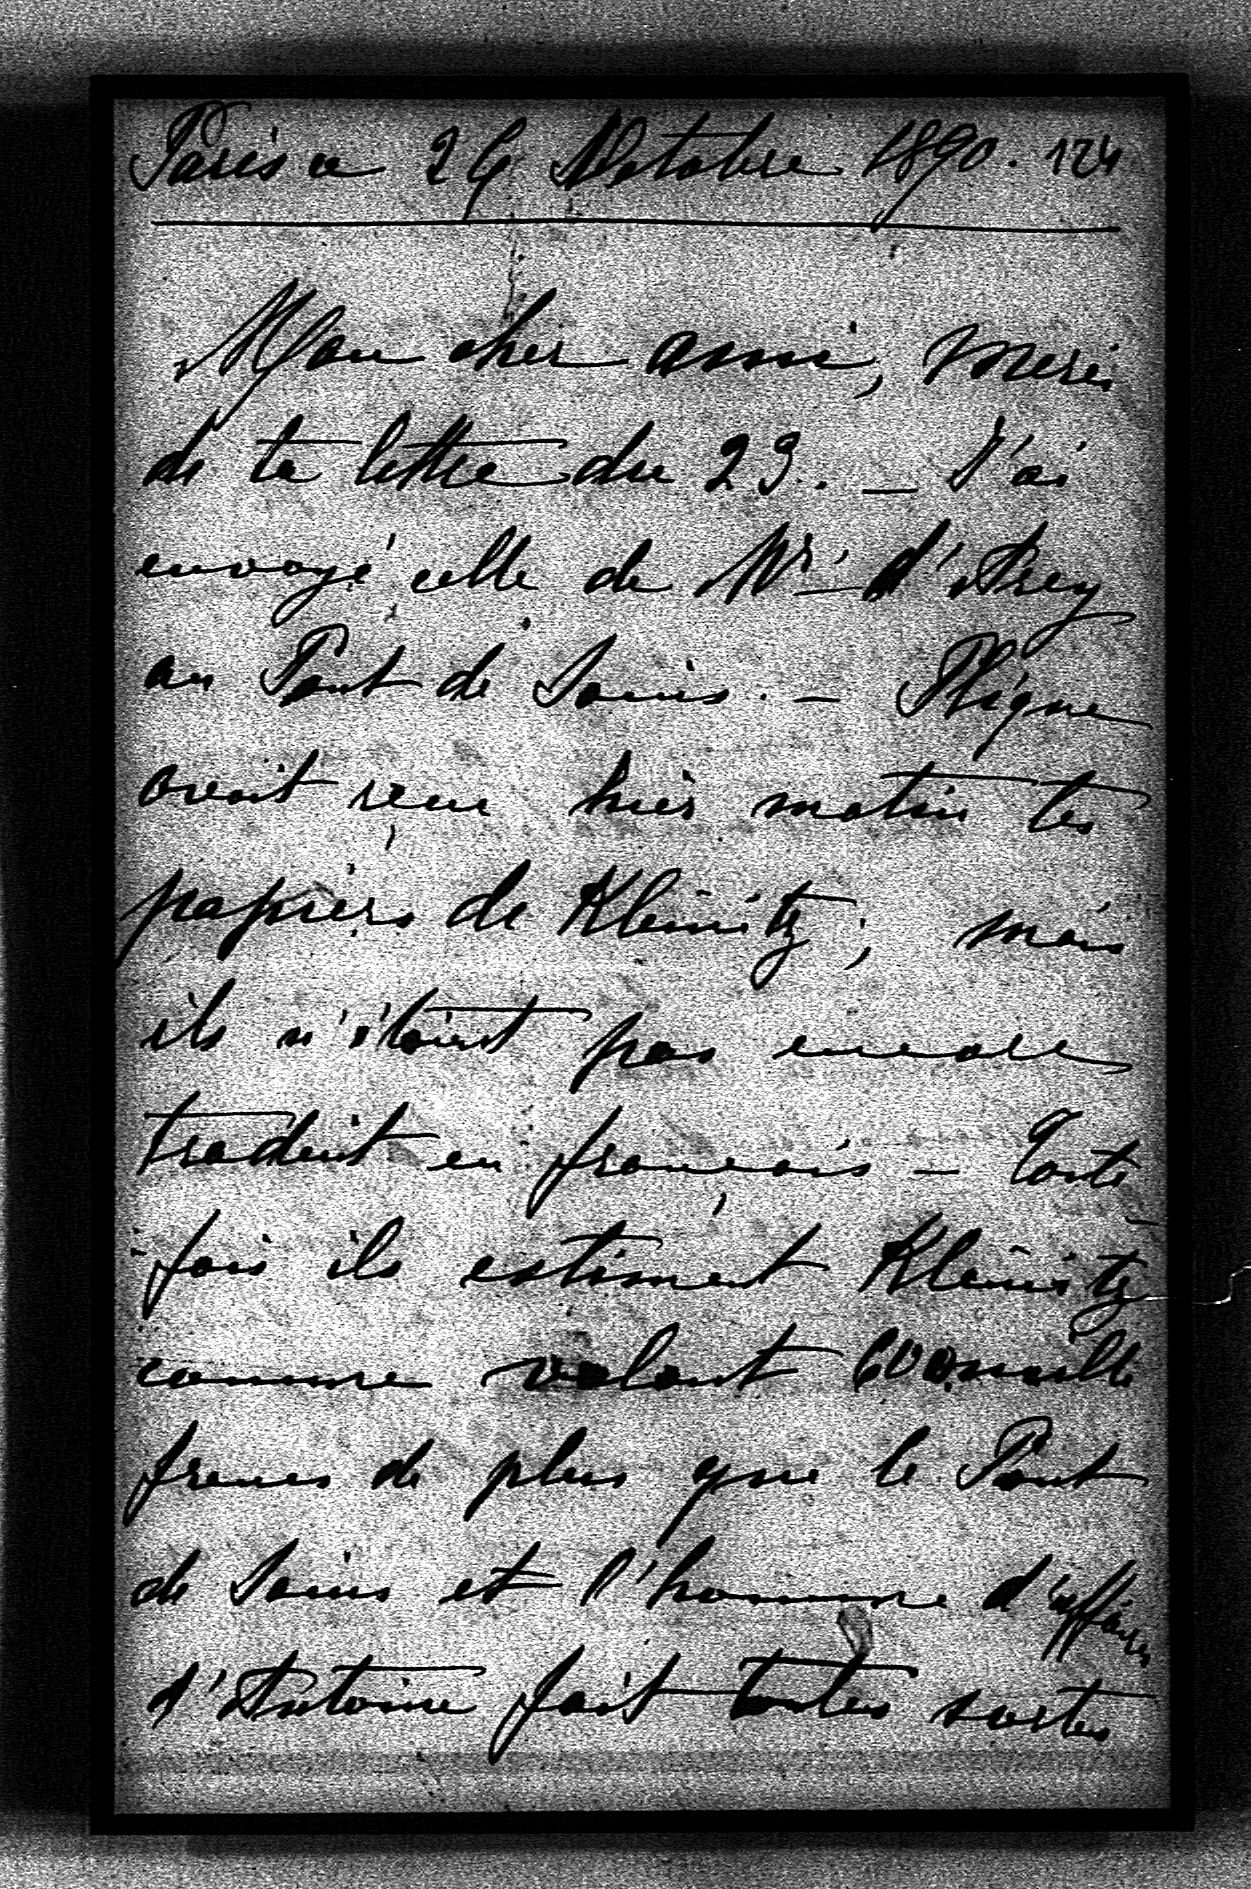 Paris ce 24 Octobre 1890. 124
Mon cher ami, merci
de ta lettre du 23. — J'ai
envoyé celle de Mr d'Arcy
au Pont de Sains. — Pligne
avait reçu hier matin tes
papiers de Kleinitz; mais
ils n'étaient pas encore
traduit en français — Toute
fois ils estiment Kleinitz
comme valant 600 mille
francs de plus que le Pont
de Sains et l'homme d'affaires
d'Antoine fait toutes sortes